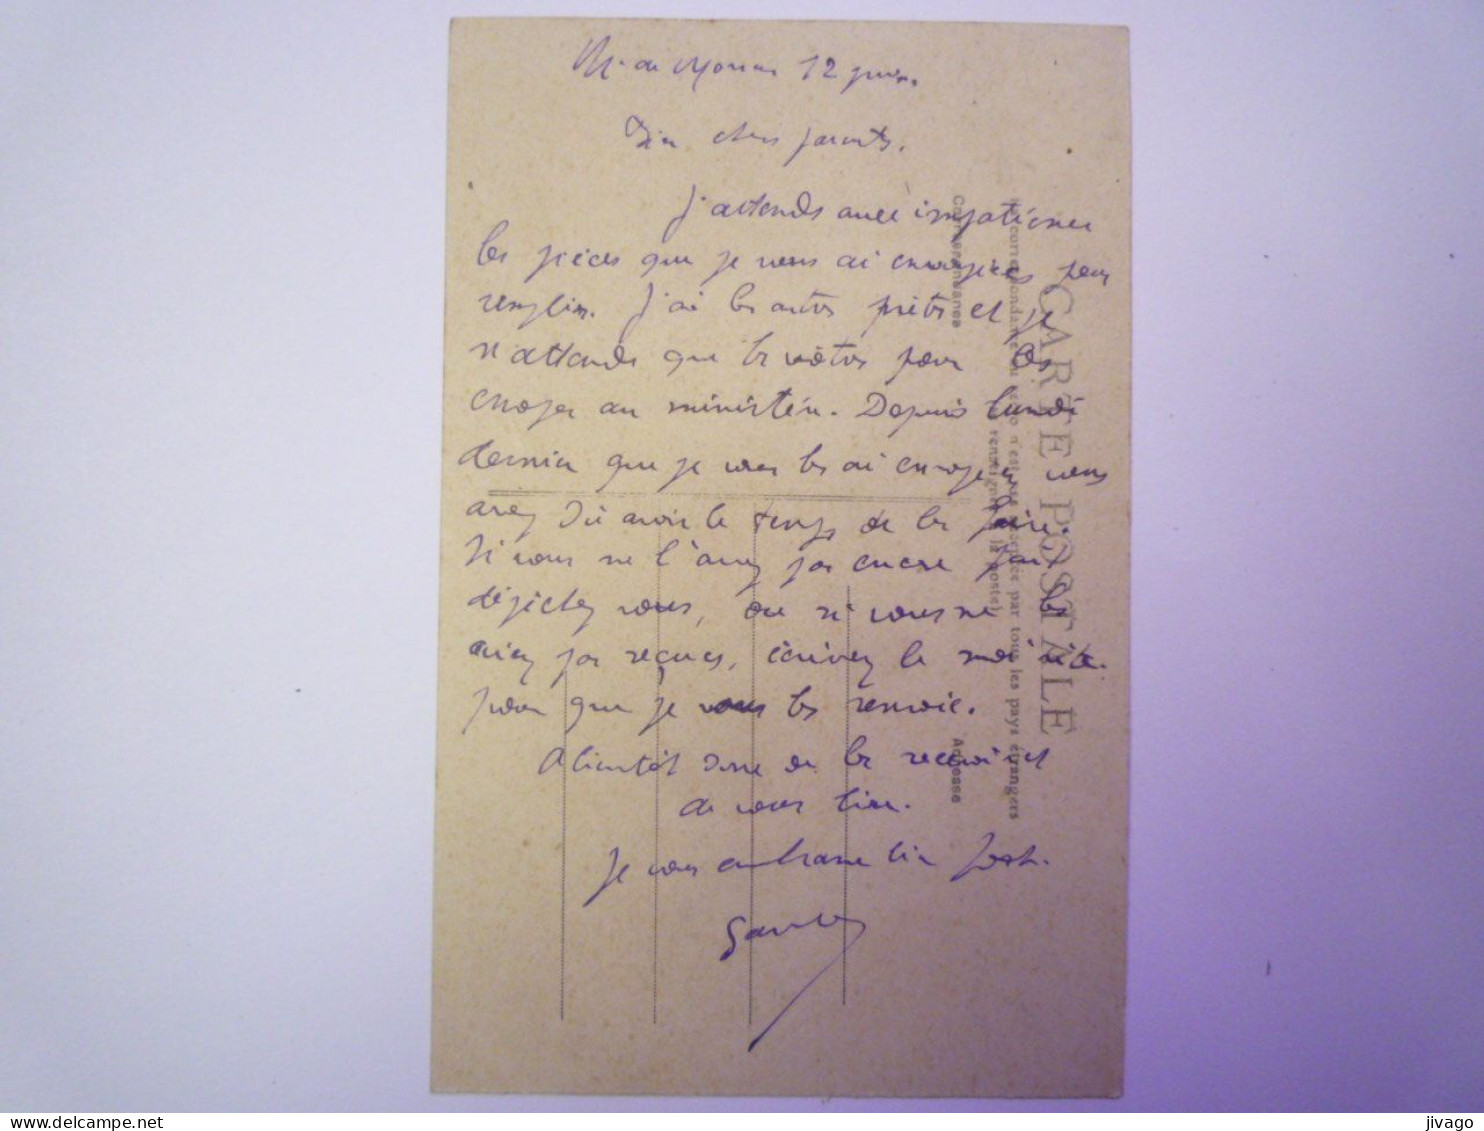 12
chers parents.
J'attends avec impatience
les pièces que je vous ai envoyées pour
remplir. J'ai les autres prêts et je
n'attends que les vôtres pour les
envoyer au ministère. Depuis lundi
dernier que je vous les ai envoyées vous
avez dû avoir le temps de les faire.
Si vous ne l'avez pas encore fait
dépêchez vous, ou si vous ne les
aviez pas reçues, écrivez le moi vite
pour que je vous les renvoie.
A bientôt donc de les recevoir et
de vous lire.
Je vous embrasse bien fort.
CARTE POSTALE
(La correspondance au recto n'est pas acceptée par tous les pays étrangers
(se renseigner à la poste)
Correspondance
Adresse
delcampe.net
jivago